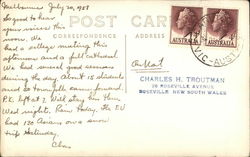 Melbourne July 20, 1958
So good to hear
your voices this
noon. We
had a college meeting this
afternoon and a full cathedral.
We had several good sessions
during the day. About 15 students
and
P.K. left at 2. Will stay here thru
Wed night. Rainy today. The EU
had 130 Asians on a snow
trip Saturday.
Chas
POST CARD
CORRESPONDENCE
ADDRESS
AUSTRALIA
AUSTRALIA
VIC-AUST
Air Mail
CHARLES H. TROUTMAN
ROSEVILLE AVENUE
ROSEVILLE NEW SOUTH WALES